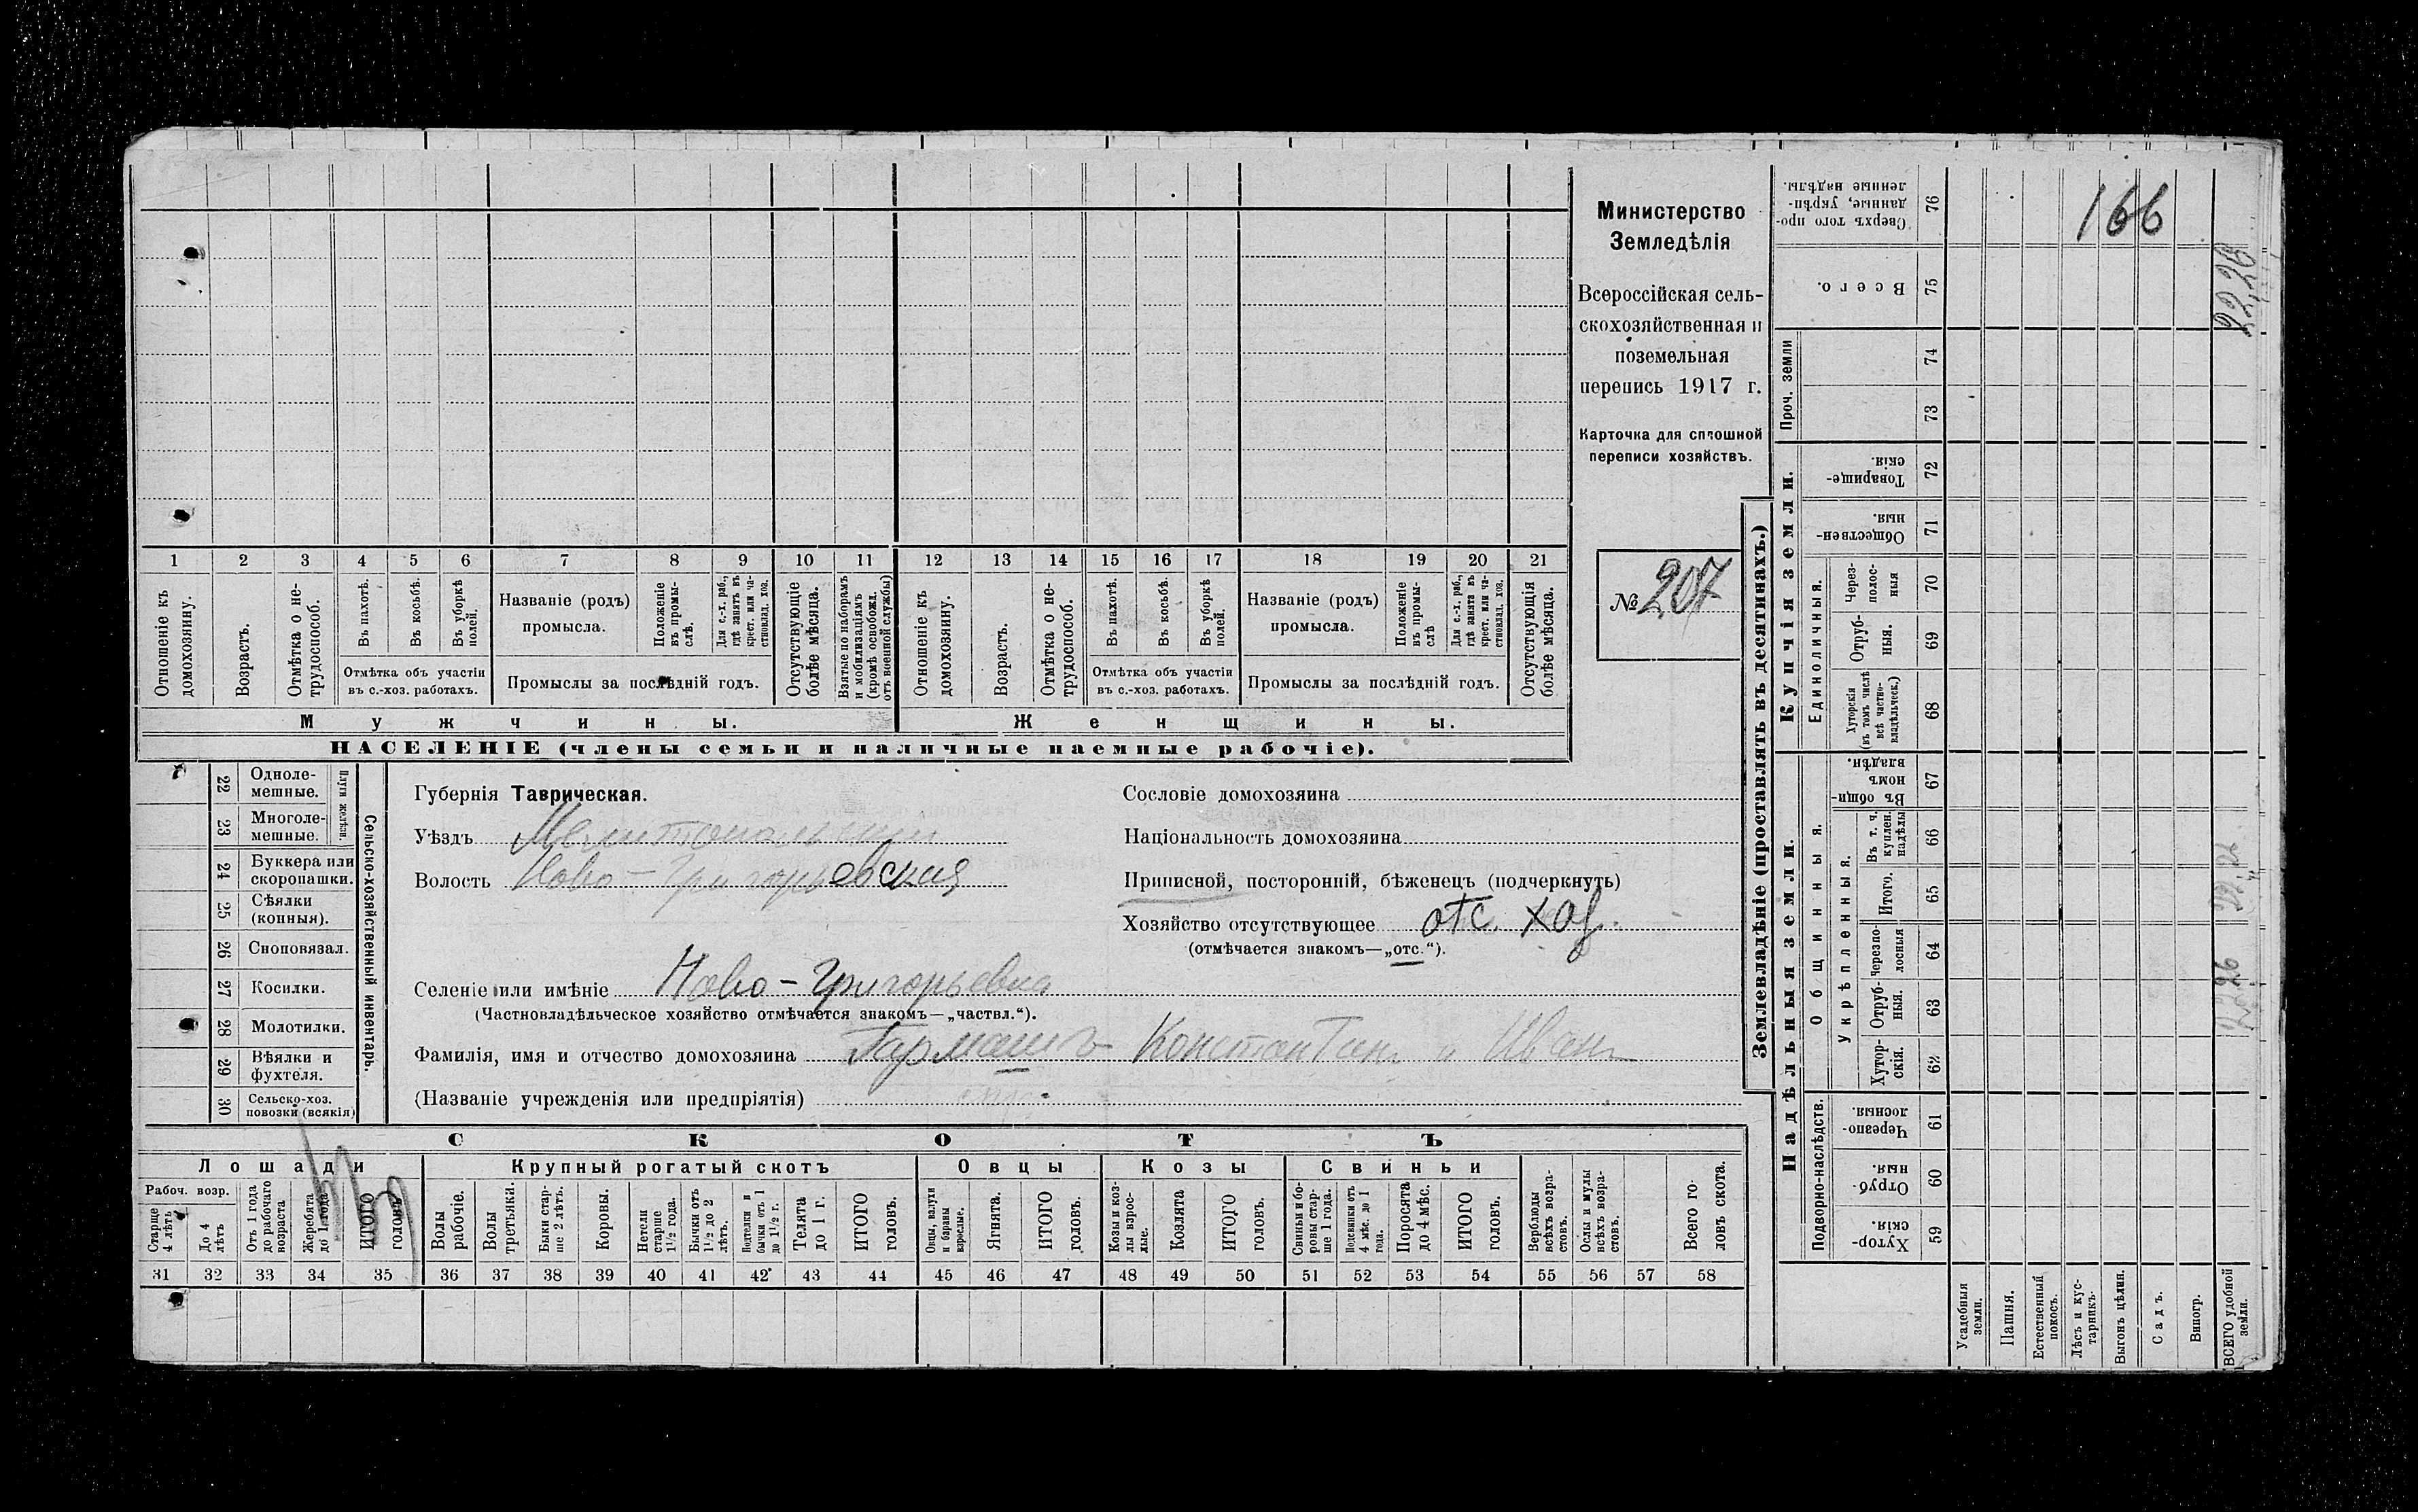 Министерство
Земледѣлія
Всероссійская сель-
скохозяйственная и
поземельная
перепись 1917 г.
Карточка для сплошной
переписи хозяйствъ.
№ 207
1 2 3 4 5 6 7 8 9 10 11 12 13 14 15 16 17 18 19 20 21
Отношеніе къ домохозяину.
Возрастъ.
Отмѣтка о не-
трудоспособ.
Въ пахотѣ.
Въ косьбѣ.
Въ уборкѣ полей.
Отмѣтка объ участіи
въ с.-хоз. работахъ.
Названіе (родъ)
промысла.
Положеніе
въ промы-
слѣ.
Для с.-х. раб.,
гдѣ занятъ въ
крест. или ча-
стновлад. хоз.
Промыслы за послѣдній годъ.
Отсутствующіе
болѣе мѣсяца.
Взятые по наборамъ
и мобилизаціямъ
(кромѣ освобожд.
отъ военной службы)
Отношеніе къ
домохозяину.
Возрастъ.
Отмѣтка о не-
трудоспособ.
Въ пахотѣ.
Въ косьбѣ.
Въ уборкѣ
полей.
Отмѣтка объ участіи
въ с.-хоз. работахъ.
Названіе (родъ)
промысла.
Положеніе
въ промы-
слѣ
Для с.-х. раб.,
гдѣ занята въ
крест. или ча-
стновлад. хоз.
Промыслы за послѣдній годъ.
Отсутствующія
болѣе мѣсяца.
Мужчины.
Женщины.
НАСЕЛЕНІЕ (члены семьи и наличные наемные рабочіе).
Сельско-хозяйственный инвентарь.
22 Одноле-
мешные.
23 Многоле-
мешные.
24 Буккера или
скоропашки.
25 Сѣялки
(конныя).
26 Сноповязал.
27 Косилки.
28 Молотилки.
29 Вѣялки и
фухтеля.
30 Сельско-хоз.
повозки (всякія)
Губернія Таврическая.
Уѣздъ Мелитопольскій
Волость Ново-Григорьевская
Сословіе домохозяина
Національность домохозяина
Приписной, посторонній, бѣженецъ (подчеркнуть)
Хозяйство отсутствующее отс. хоз.
(отмѣчается знакомъ—„отс.“).
Селеніе или имѣніе Ново-Григорьевка
(Частновладѣльческое хозяйство отмѣчается знакомъ—„частвл.“).
Фамилія, имя и отчество домохозяина Гармашъ Константинъ и Иванъ
(Названіе учрежденія или предпріятія)
СКОТЪ
Лошади
Рабоч. возр.
Старше
4 лѣтъ
До 4
лѣтъ
Отъ 1 года
до рабочаго
возраста
Жеребята
до 1 года
ИТОГО
головъ
Крупный рогатый скотъ
Волы
рабочіе.
Волы
третьяки.
Быки стар-
ше 2 лѣтъ.
Коровы.
Нетели
старше
1½ года.
Бычки отъ
1½ до 2
лѣтъ.
Подтелки и
бычки отъ 1
до 1½ г.
Телята
до 1 г.
ИТОГО
головъ.
Овцы
Овцы, валухи
и бараны
взрослые.
Ягнята.
ИТОГО
головъ.
Козы
Козы и коз-
лы взрос-
лые.
Козлята
ИТОГО
головъ.
Свиньи
Свиньи и бо-
ровы стар-
ше 1 года.
Подсвинки отъ
4 мѣс. до 1
года.
Поросята
до 4 мѣс.
ИТОГО
головъ.
Верблюды
всѣхъ возра-
стовъ.
Ослы и мулы
всѣхъ возра-
стовъ.
Всего го-
ловъ скота.
31 32 33 34 35 36 37 38 39 40 41 42 43 44 45 46 47 48 49 50 51 52 53 54 55 56 57 58
Землевладѣніе (проставлять въ десятинахъ.)
Купчія земли.
Сверхъ того про-
данные, укрѣп-
ленные надѣлы. 76
Всего. 75
Проч. земли
74
73
Товарище-
скія. 72
Обществен-
ныя. 71
Единоличныя.
Через-
полос-
ныя 70
Отруб-
ныя. 69
Хуторскія
(въ томъ числѣ
всѣ частно-
владѣльческ.) 68
Надѣльныя земли.
Общинныя.
Въ общин-
номъ
владѣн. 67
Укрѣпленныя.
Въ т. ч.
куплен.
надѣлы 66
Итого. 65
Черезпо-
лосныя 64
Отруб-
ныя. 63
Хутор-
скія. 62
Подворно-наслѣдств.
Черезпо-
лосныя. 61
Отруб-
ныя. 60
Хутор-
скія. 59
Усадебныя
земли.
Пашня.
Естественный
покосъ.
Лѣсъ и кус-
тарникъ.
Выгонъ цѣлин.
Садъ.
Виногр.
ВСЕГО удобной
земли.
166